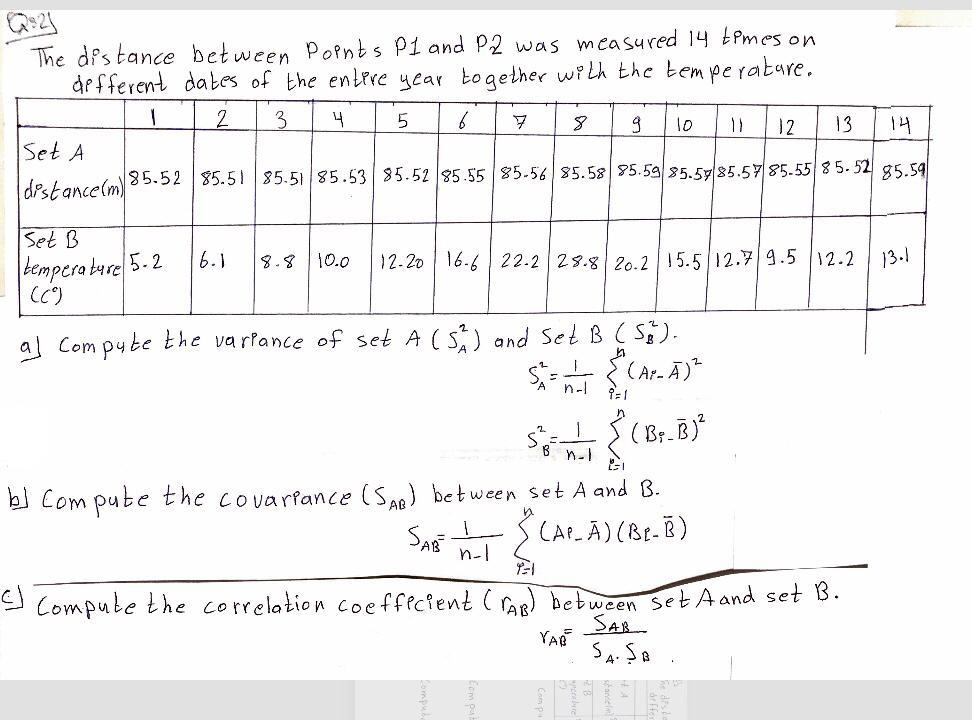 Q:2)
The distance between Points P1 and P2 was measured 14 times on
different dates of the entire year together with the temperature.
1 2 3 4 5 6 7 8 9 10 11 12 13 14
Set A
distance(m) 85.52 85.51 85.51 85.53 85.52 85.55 85.56 85.58 85.59 85.57 85.57 85.55 85.52 85.59
Set B
temperature 5.2 6.1 8.8 10.0 12.20 16.6 22.2 28.8 20.2 15.5 12.7 9.5 12.2 13.1
(C°)
a) Compute the variance of set A (S²_A) and Set B (S²_B).
S²_A = 1/(n-1) Σ_{i=1}^{n} (Ai - Ā)²
S²_B = 1/(n-1) Σ_{i=1}^{n} (Bi - B̄)²
b) Compute the covariance (S_AB) between set A and B.
S_AB = 1/(n-1) Σ_{i=1}^{n} (Ai - Ā)(Bi - B̄)
c) Compute the correlation coefficient (r_AB) between set A and set B.
r_AB = S_AB / (S_A . S_B)